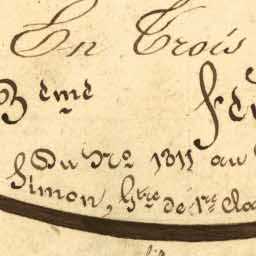 En Trois
3ème fe
Du No. 1311 au
Simon, Gtre de 1re cla